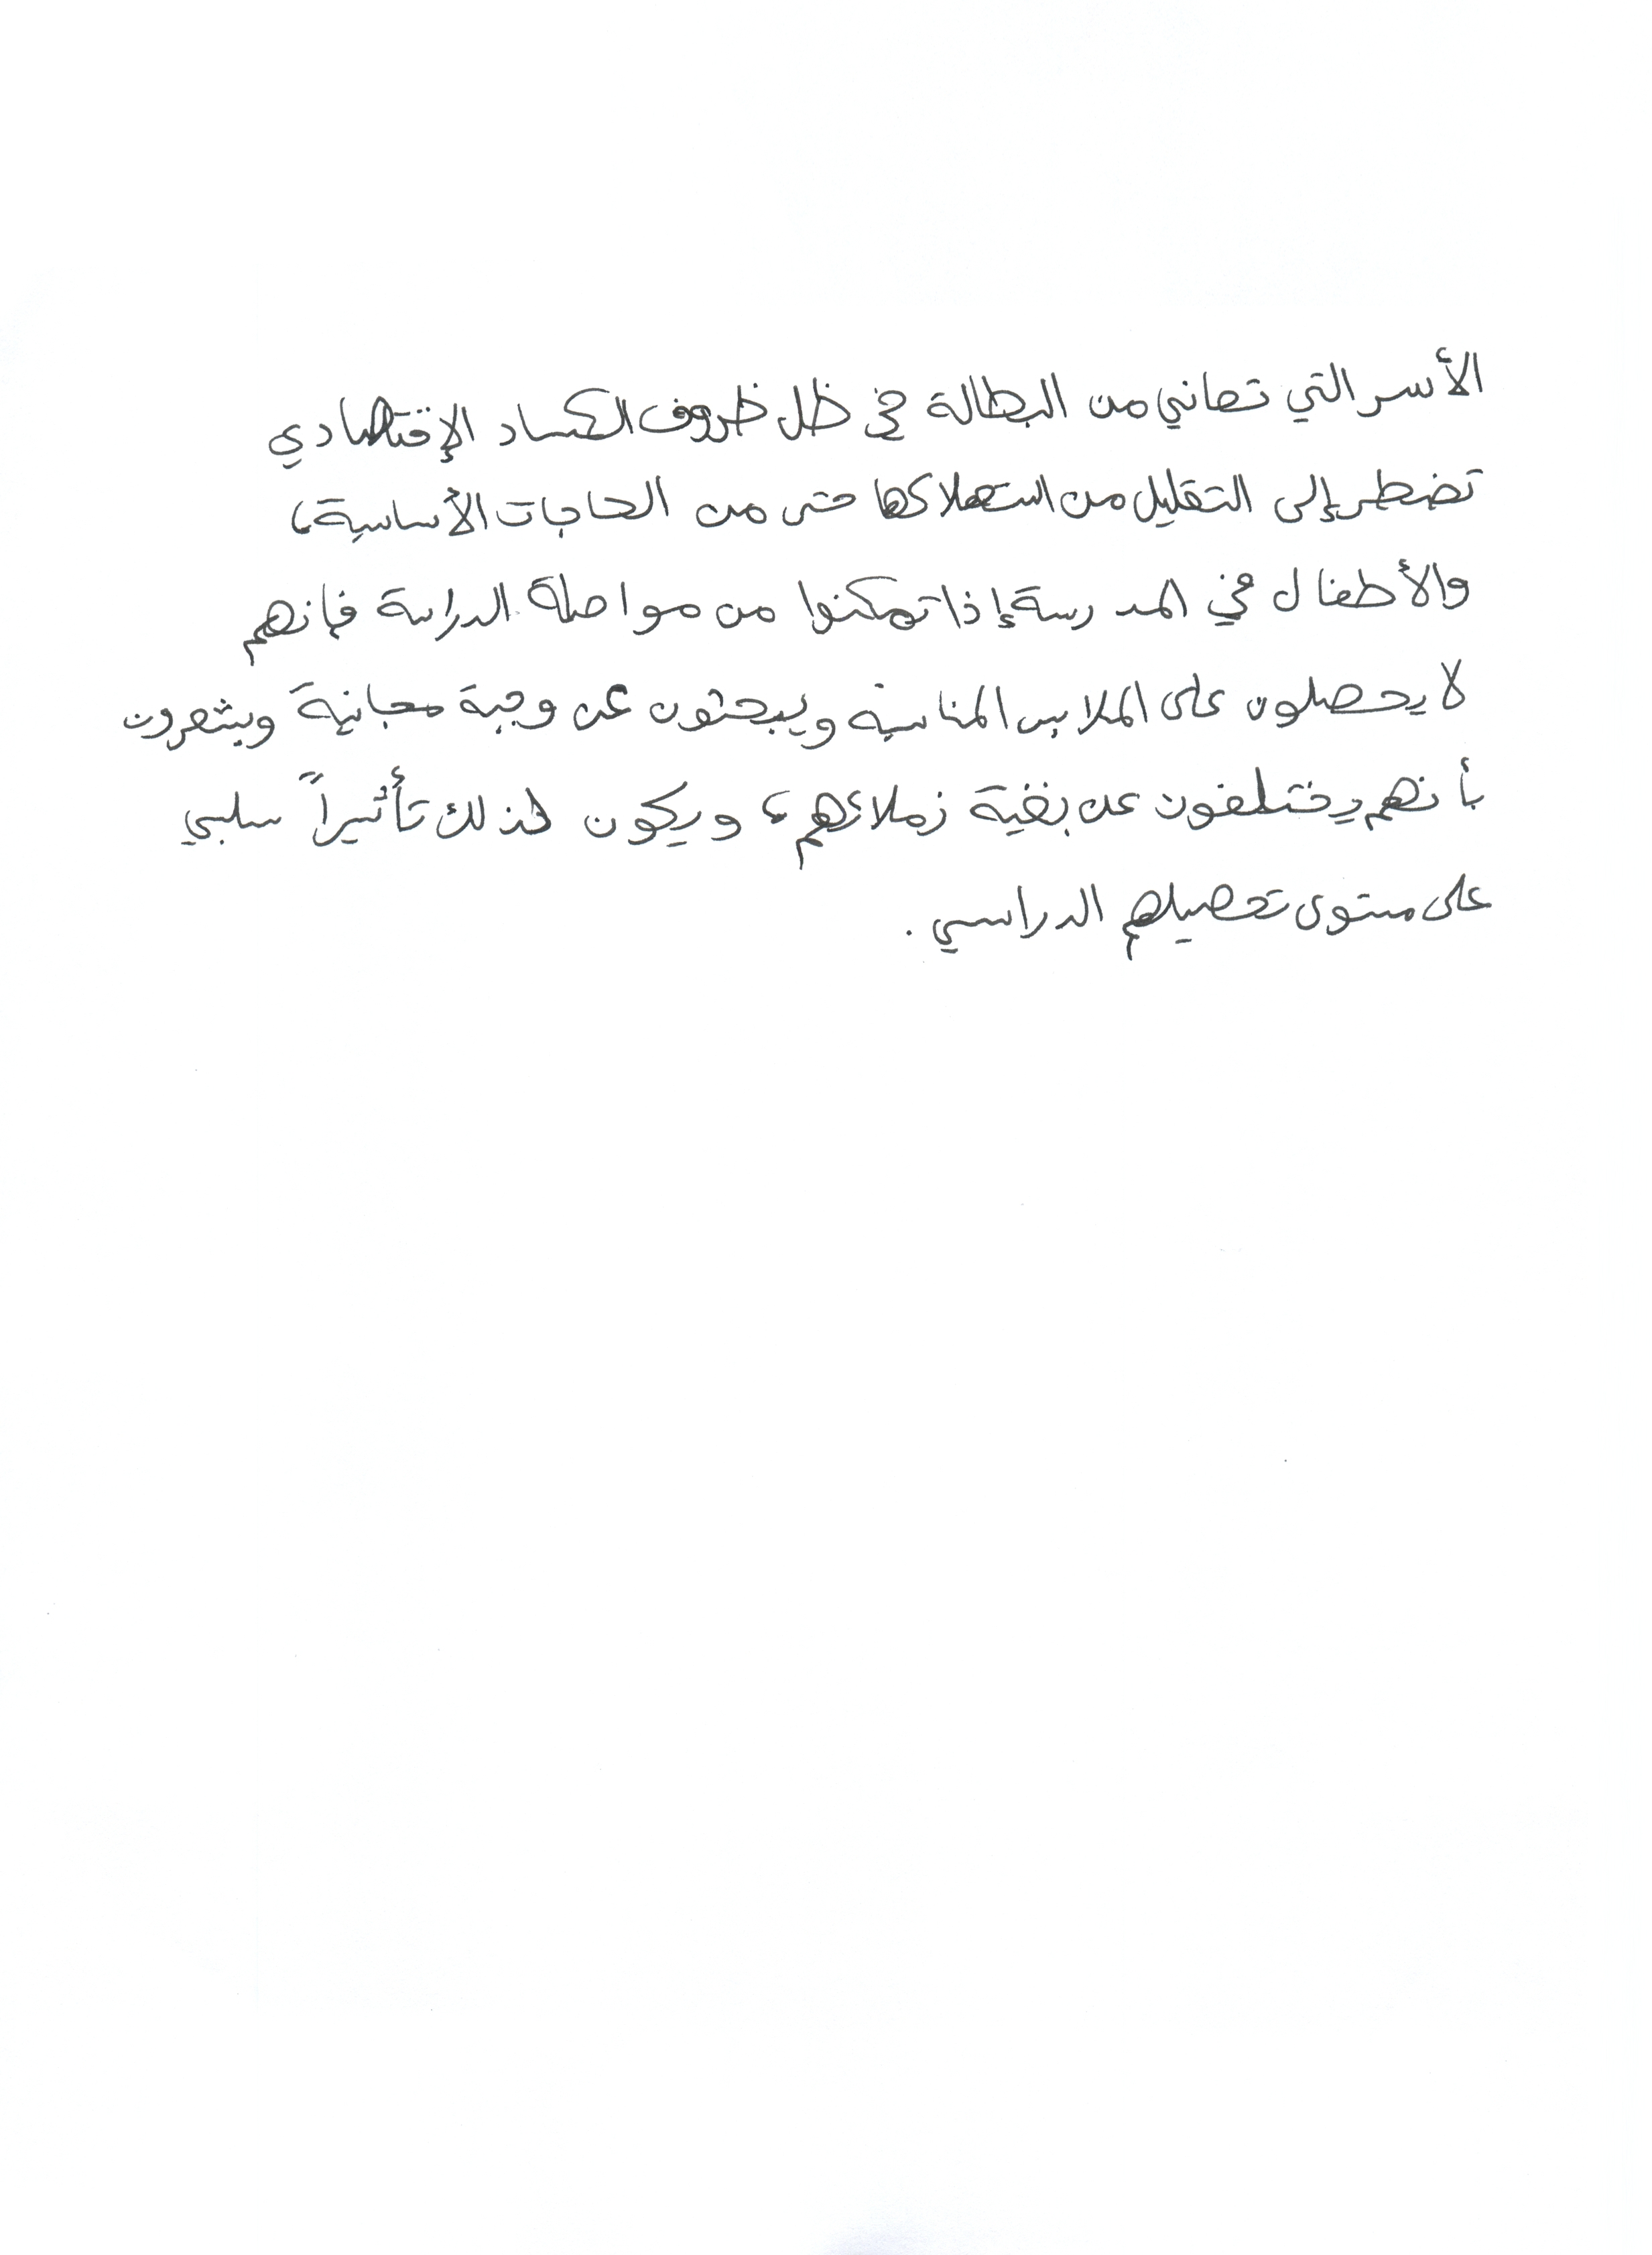 الأسر التي تعاني من البطالة في ظل ظروف الكساد الإقتصادي
تضطر إلى التقليل من استهلاكها حتى من الحاجات الأساسية،
والأطفال في المدرسة إذا تمكنوا من مواصلة الدراسة فإنهم
لا يحصلون على الملابس المناسبة ويبحثون عن وجبة مجانية ويشعرون
بأنهم يختلفون عن بقية زملائهم، ويكون لذلك تأثيراً سلبي
على مستوى تحصيلهم الدراسي.